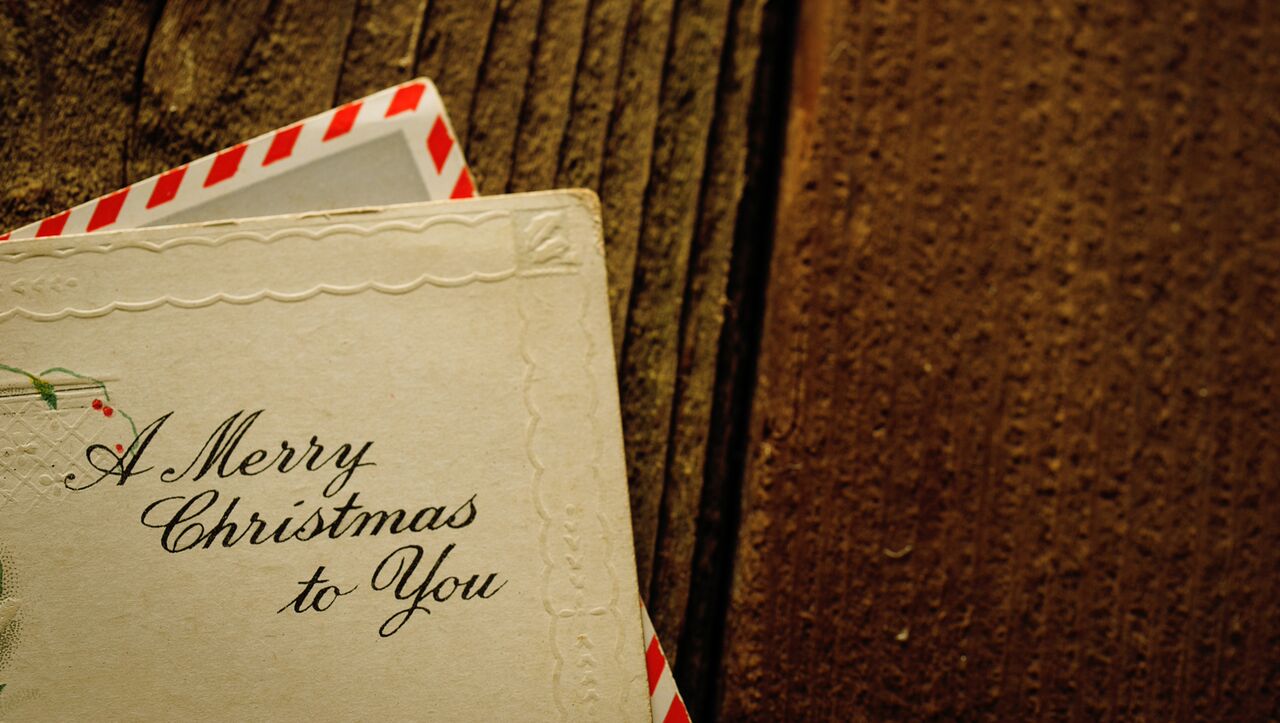 A Merry
Christmas
to You